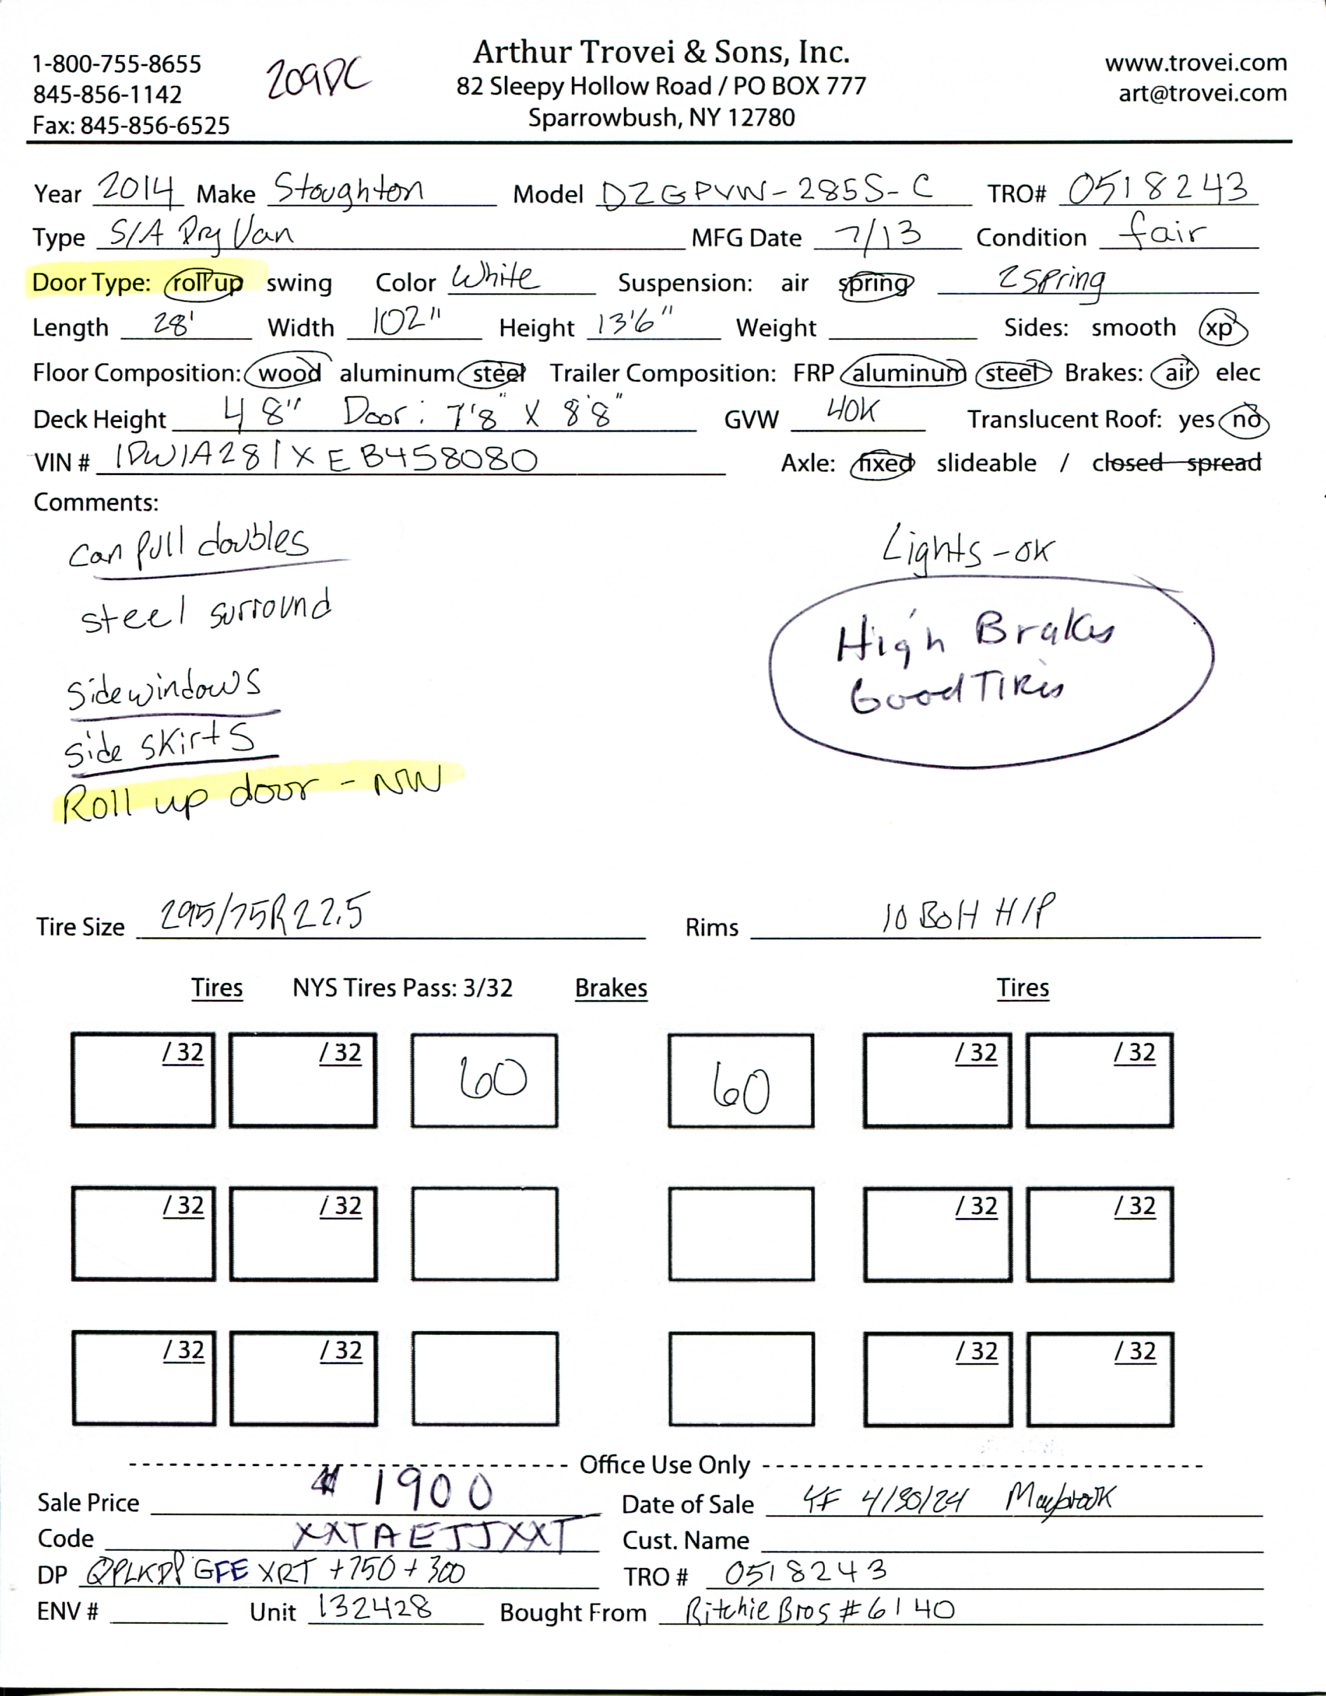 1-800-755-8655
845-856-1142
Fax: 845-856-6525
209DC
Arthur Trovei & Sons, Inc.
82 Sleepy Hollow Road / PO BOX 777
Sparrowbush, NY 12780
www.trovei.com
art@trovei.com
Year 2014 Make Stoughton Model DZGPVW-285S-C TRO# 0518243
Type S/A Dry Van MFG Date 7/13 Condition fair
Door Type: roll up swing Color White Suspension: air spring 2 spring
Length 28' Width 102" Height 13'6" Weight Sides: smooth xp
Floor Composition: wood aluminum steel Trailer Composition: FRP aluminum steel Brakes: air elec
Deck Height 48" Door: 7'8" X 8'8" GVW 40K Translucent Roof: yes no
VIN # 1DW1A281XEB458080 Axle: fixed slideable / closed spread
Comments:
can pull doubles
Lights-ok
steel surround
High Brakes
Good Tires
sidewindows
side skirts
Roll up door - NW
Tire Size 295/75R22.5 Rims 10 Bolt H/P
Tires NYS Tires Pass: 3/32 Brakes Tires
/ 32 / 32 60 60 / 32 / 32
/ 32 / 32 / 32 / 32
/ 32 / 32 / 32 / 32
Office Use Only
Sale Price $1900 Date of Sale 4/30/24 Maybrook
Code XXTAETJJXXT Cust. Name
DP GFE XRT +750+300 TRO # 0518243
ENV # Unit 132428 Bought From Ritchie Bros #6140